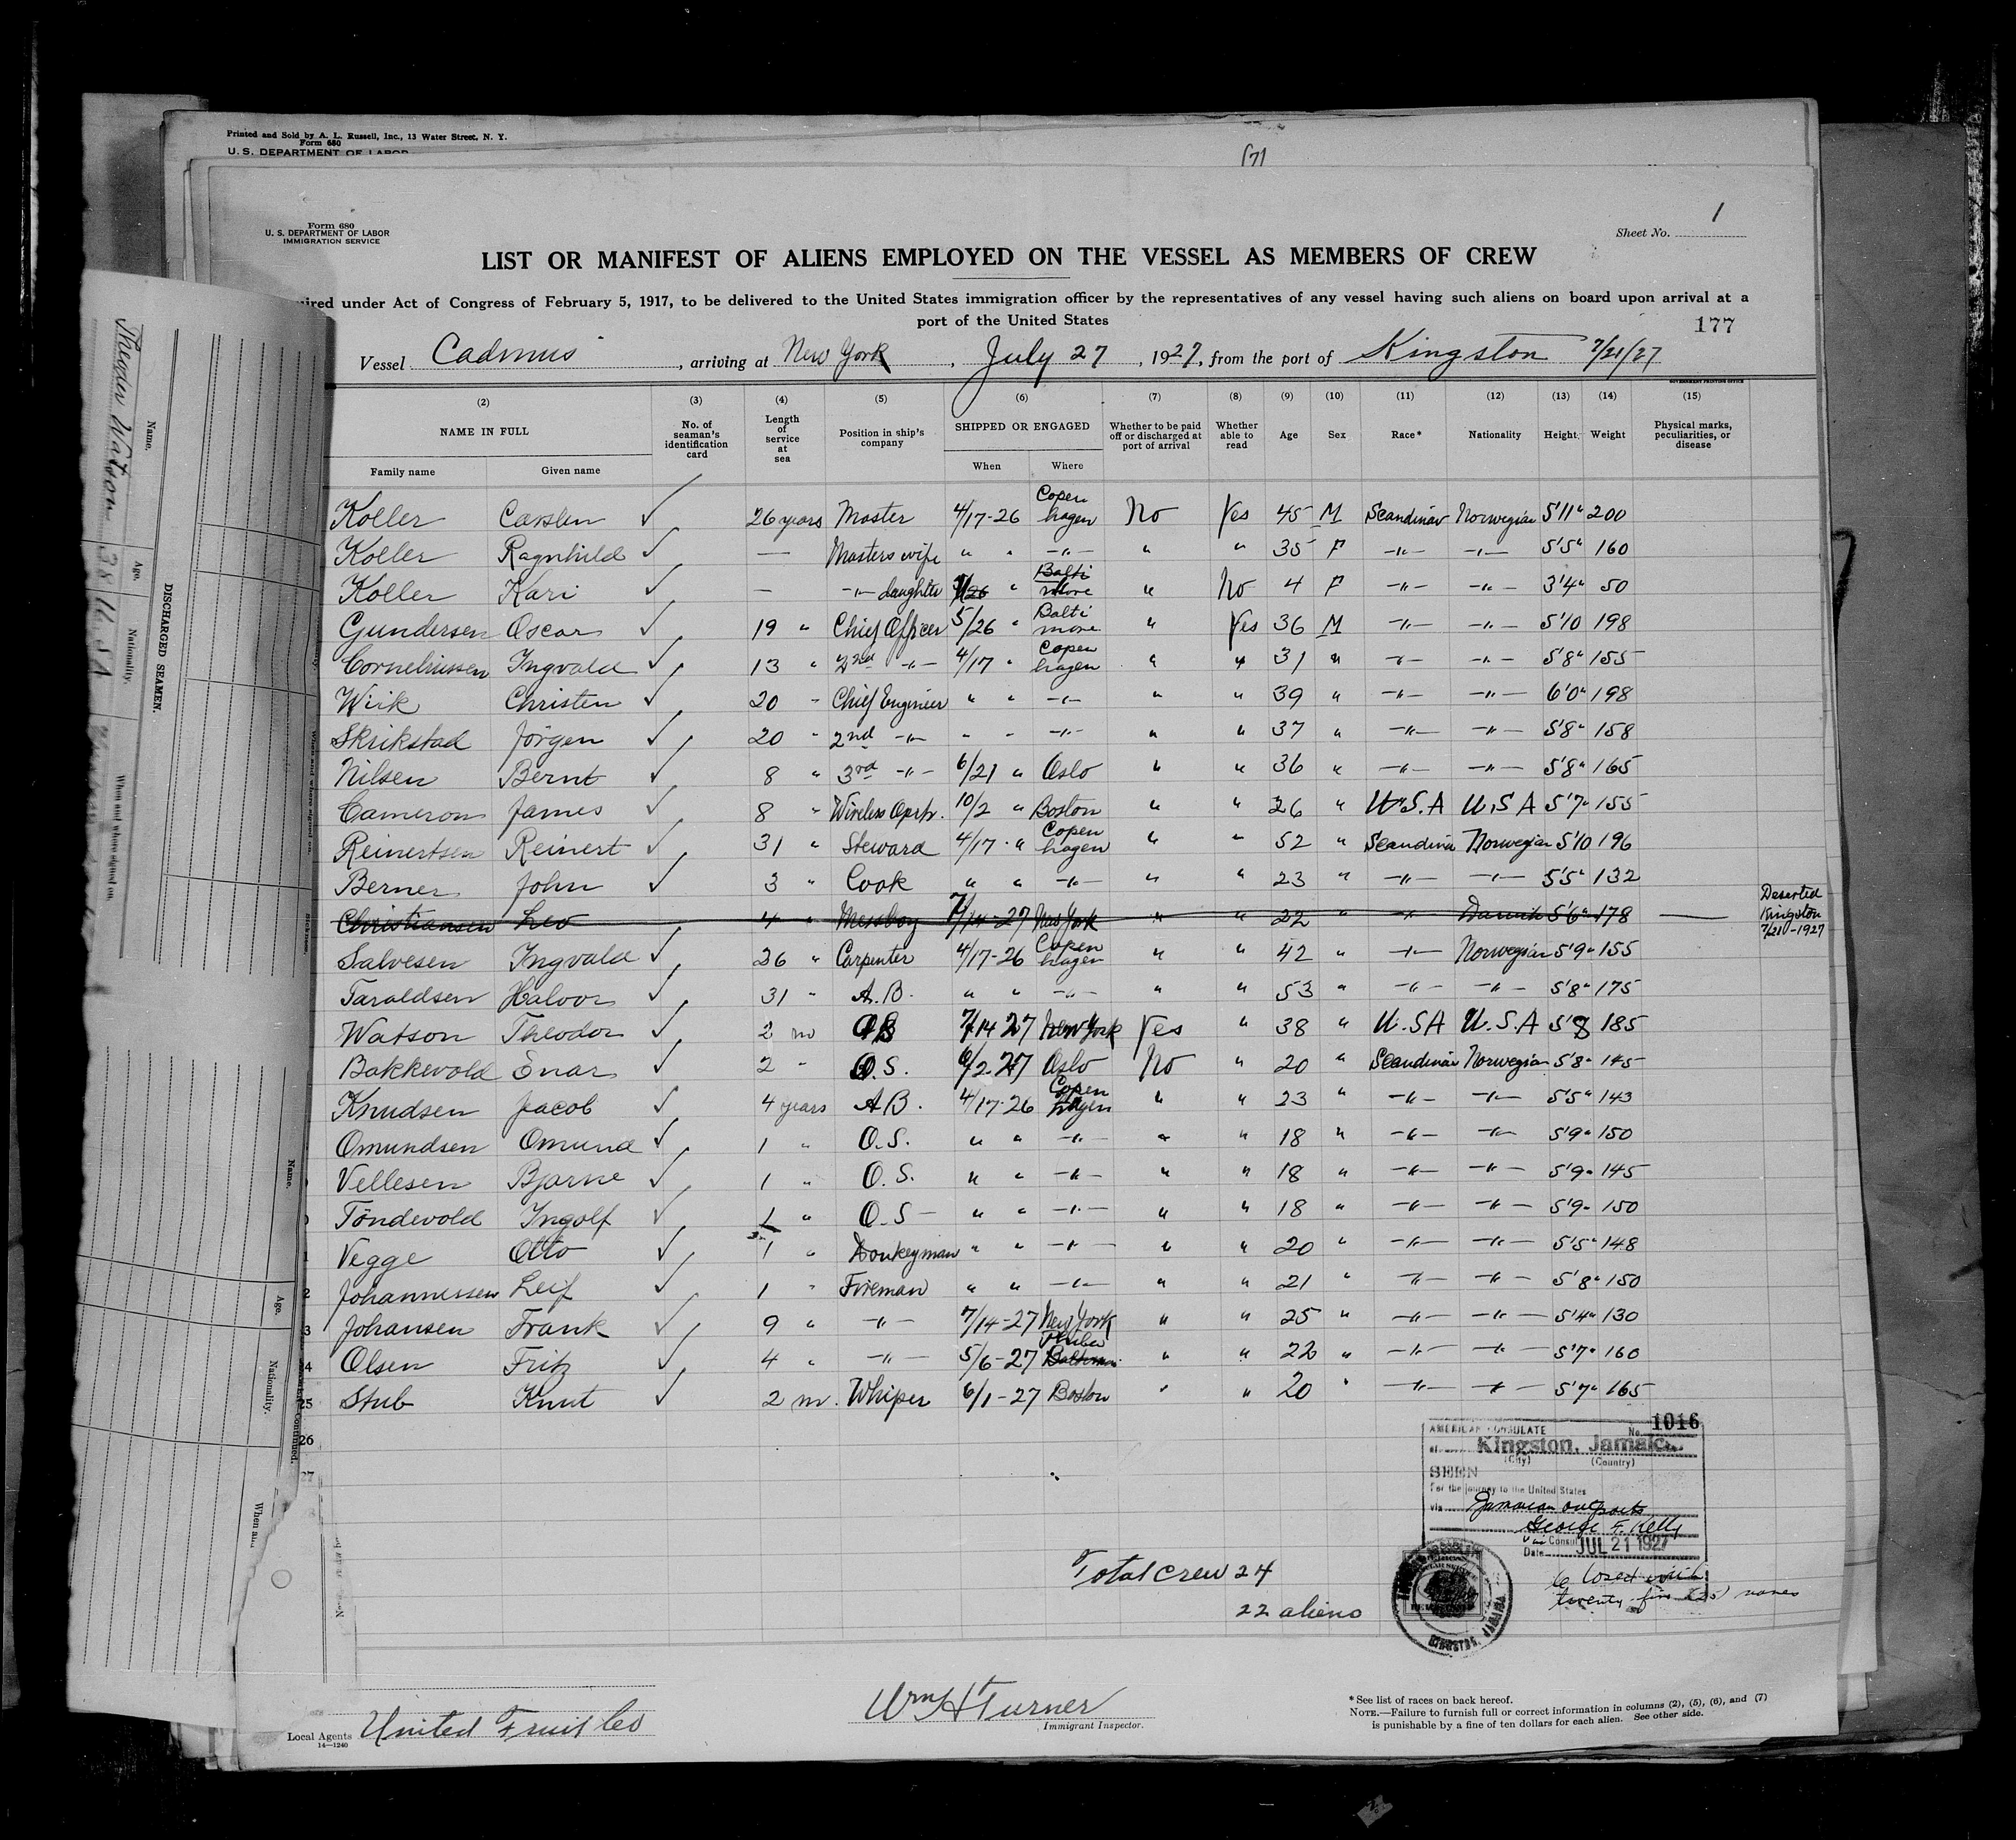 Printed and Sold by A. L. Russell, Inc., 13 Water Street, N. Y.
Form 680
U. S. DEPARTMENT OF LABOR
171
Form 680
U. S. DEPARTMENT OF LABOR
IMMIGRATION SERVICE
Sheet No. 1
LIST OR MANIFEST OF ALIENS EMPLOYED ON THE VESSEL AS MEMBERS OF CREW
ired under Act of Congress of February 5, 1917, to be delivered to the United States immigration officer by the representatives of any vessel having such aliens on board upon arrival at a
port of the United States
177
Vessel Cadmus, arriving at New York, July 27, 1927, from the port of Kingston 7/21/27
GOVERNMENT PRINTING OFFICE
(2) (3) (4) (5) (6) (7) (8) (9) (10) (11) (12) (13) (14) (15)
NAME IN FULL No. of seaman's identification card Length of service at sea Position in ship's company SHIPPED OR ENGAGED Whether to be paid off or discharged at port of arrival Whether able to read Age Sex Race* Nationality Height Weight Physical marks, peculiarities, or disease
Family name Given name When Where
Koller Carsten ✓ 26 years Master 4/17-26 Copenhagen No Yes 45 M Scandinav Norwegian 5'11" 200
Koller Ragnhild ✓ — Masters wife " " -"- " " 35 F -"- -"- 5'5" 160
Koller Kari ✓ — -"- daughter 5/26 " Baltimore " No 4 F -"- -"- 3'4" 50
Gundersen Oscar ✓ 19 " Chief Officer 5/26 " Baltimore " Yes 36 M -"- -"- 5'10 198
Corneliussen Ingvald ✓ 13 " 2nd -"- 4/17 " Copenhagen " " 31 " -"- -"- 5'8" 155
Wiik Christen ✓ 20 " Chief Engineer " " -"- " " 39 " -"- -"- 6'0" 198
Skrikstad Jörgen ✓ 20 " 2nd -"- " " -"- " " 37 " -"- -"- 5'8" 158
Nilsen Bernt ✓ 8 " 3rd -"- 6/21 " Oslo " " 36 " -"- -"- 5'8" 165
Cameron James ✓ 8 " Wireless Opertr. 10/2 " Boston " " 26 " U.S.A U.S A 5'7" 155
Reinertsen Reinert ✓ 31 " Steward 4/17 " Copenhagen " " 52 " Scandinav Norwegian 5'10 196
Berner John ✓ 3 " Cook " " -"- " " 23 " -"- -"- 5'5" 132
Christiansen Leo 4 " Messboy 7/14-27 New York " " 22 " -"- Danish 5'6" 178 — Deserted Kingston 7/21-1927
Salvesen Ingvald ✓ 26 " Carpenter 4/17-26 Copenhagen " " 42 " -"- Norwegian 5'9" 155
Taraldsen Halvor ✓ 31 " A.B. " " -"- " " 53 " -"- -"- 5'8" 175
Watson Theodor ✓ 2 m AB 7/14 27 New York Yes " 38 " U.SA U.S.A 5'8 185
Bakkevold Enar ✓ 2 " O.S. 6/2-27 Oslo No " 20 " Scandinav Norwegian 5'8" 145
Knudsen Jacob ✓ 4 years A B. 4/17-26 Copenhagen " " 23 " -"- -"- 5'5" 143
Omundsen Omund ✓ 1 " O.S. " " -"- " " 18 " -"- -"- 5'9" 150
Vellesen Bjarne ✓ 1 " O.S. " " -"- " " 18 " -"- -"- 5'9" 145
Töndevold Ingolf ✓ 1 " O.S " " -"- " " 18 " -"- -"- 5'9" 150
Vegge Otto ✓ 1 " Donkeyman " " -"- " " 20 " -"- -"- 5'5" 148
Johannessen Leif ✓ 1 " Fireman " " -"- " " 21 " -"- -"- 5'8" 150
Johansen Frank ✓ 9 " -"- 7/14-27 New York " " 25 " -"- -"- 5'4" 130
Olsen Fritz ✓ 4 " -"- 5/6-27 Baltimore " " 22 " -"- -"- 5'7" 160
25 Stub Knut ✓ 2 m. Whiper 6/1-27 Boston " " 20 " -"- -"- 5'7" 165
26
AMERICAN CONSULATE No. 1016
at Kingston, Jamaica.
(City) (Country)
SEEN
For the journey to the United States
via Jamaican outports
George F. Kelly
Vice Consul
Date JUL 21 1927
Closed with
twenty five (25) names
KINGSTON, JAMAICA
Total crew 24
22 aliens
Local Agents United Fruit Co
14—1240
Wm H Turner
Immigrant Inspector.
* See list of races on back hereof.
NOTE.—Failure to furnish full or correct information in columns (2), (5), (6), and (7)
is punishable by a fine of ten dollars for each alien. See other side.
DISCHARGED SEAMEN.
Name. Age. Nationality. When and where signed on.
Theodor Watson 38 U.S.A
Name. Age. Nationality.
Continued.